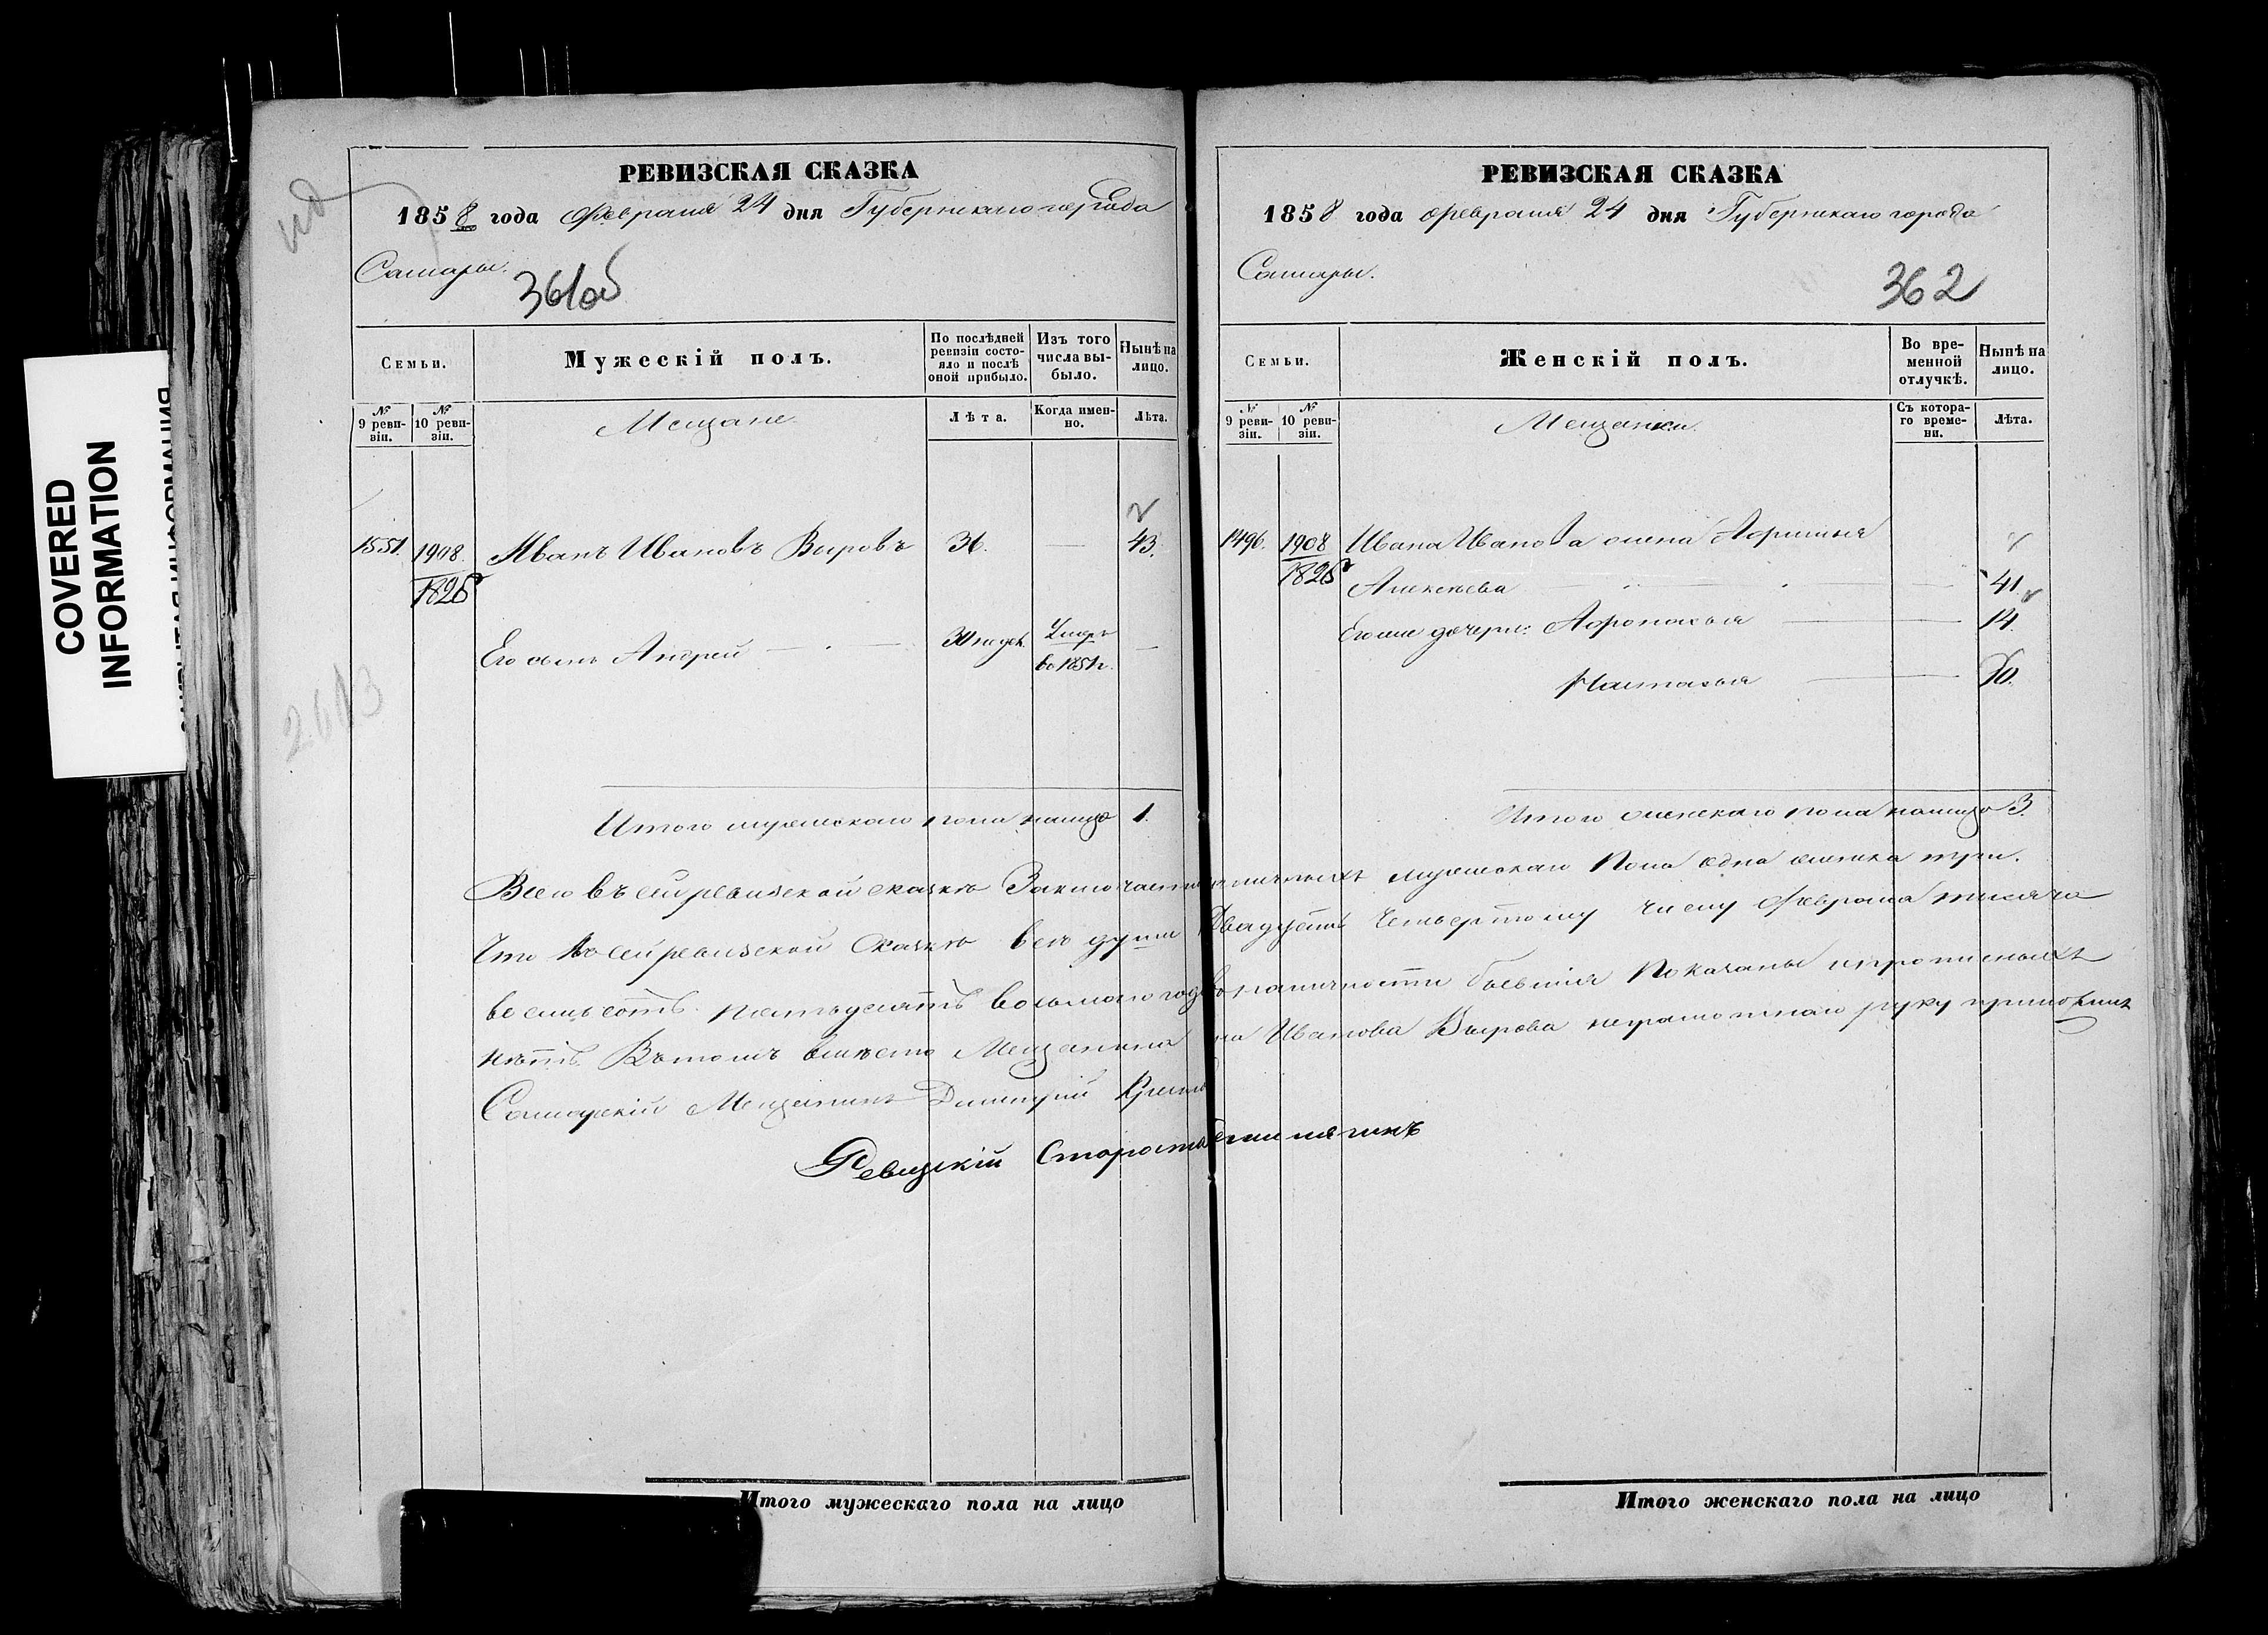 COVERED
INFORMATION
РЕВИЗСКАЯ СКАЗКА
1858 года Февраля 24 дня Губернскаго города
Самары.
361об
Семьи.
Мужескій полъ.
По послѣдней ревизіи состояло и послѣ оной прибыло.
Изъ того числа выбыло.
Нынѣ на лицо.
№ 9 ревизіи.
№ 10 ревизіи.
Мещане.
Лѣта.
Когда именно.
Лѣта.
1551. 1908. Иванъ Ивановъ Выровъ 36. — 43.
1826
Его сынъ Андрей — 30 недѣл. Умеръ въ 1851 г. —
2613
Итого мужескаго пола на лицо 1.
РЕВИЗСКАЯ СКАЗКА
1858 года февраля 24 дня Губернскаго города
Самары.
362
Семьи.
Женскій полъ.
Во временной отлучкѣ.
Нынѣ на лицо.
№ 9 ревизіи.
№ 10 ревизіи.
Мещанки.
Съ котораго времени.
Лѣта.
1496. 1908 Ивана Иванова жена Афимья
1826 Алексѣева — — 41.
Его же дочери: Афонасья — — 14.
Настасья — — 10.
Итого женскаго пола на лицо 3.
Всего въ сей ревизской сказкѣ Заключается наличныхъ мужескаго Пола одна женска три.
Что Въ сей ревизской Сказкѣ всѣ души Двадцать Четвертому числу Февраля тысяча
восемьсотъ пятьдесятъ восьмаго года въ наличности бывшія Показаны и прописныхъ
нѣтъ Въ томъ вмѣсто Мещанина Ивана Иванова Вырова неграмотнаго руку приложилъ
Самарскій Мещанинъ Димитрій
Ревизскій Староста
Итого мужескаго пола на лицо
Итого женскаго пола на лицо